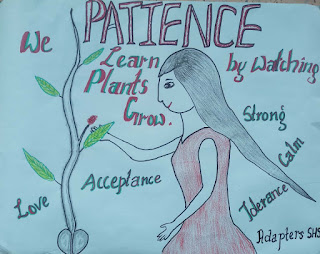 We PATIENCE
Learn by Watching
Plants
Grow.
Strong
Calm
Acceptance
Tolerance
Love
Adapters SHS